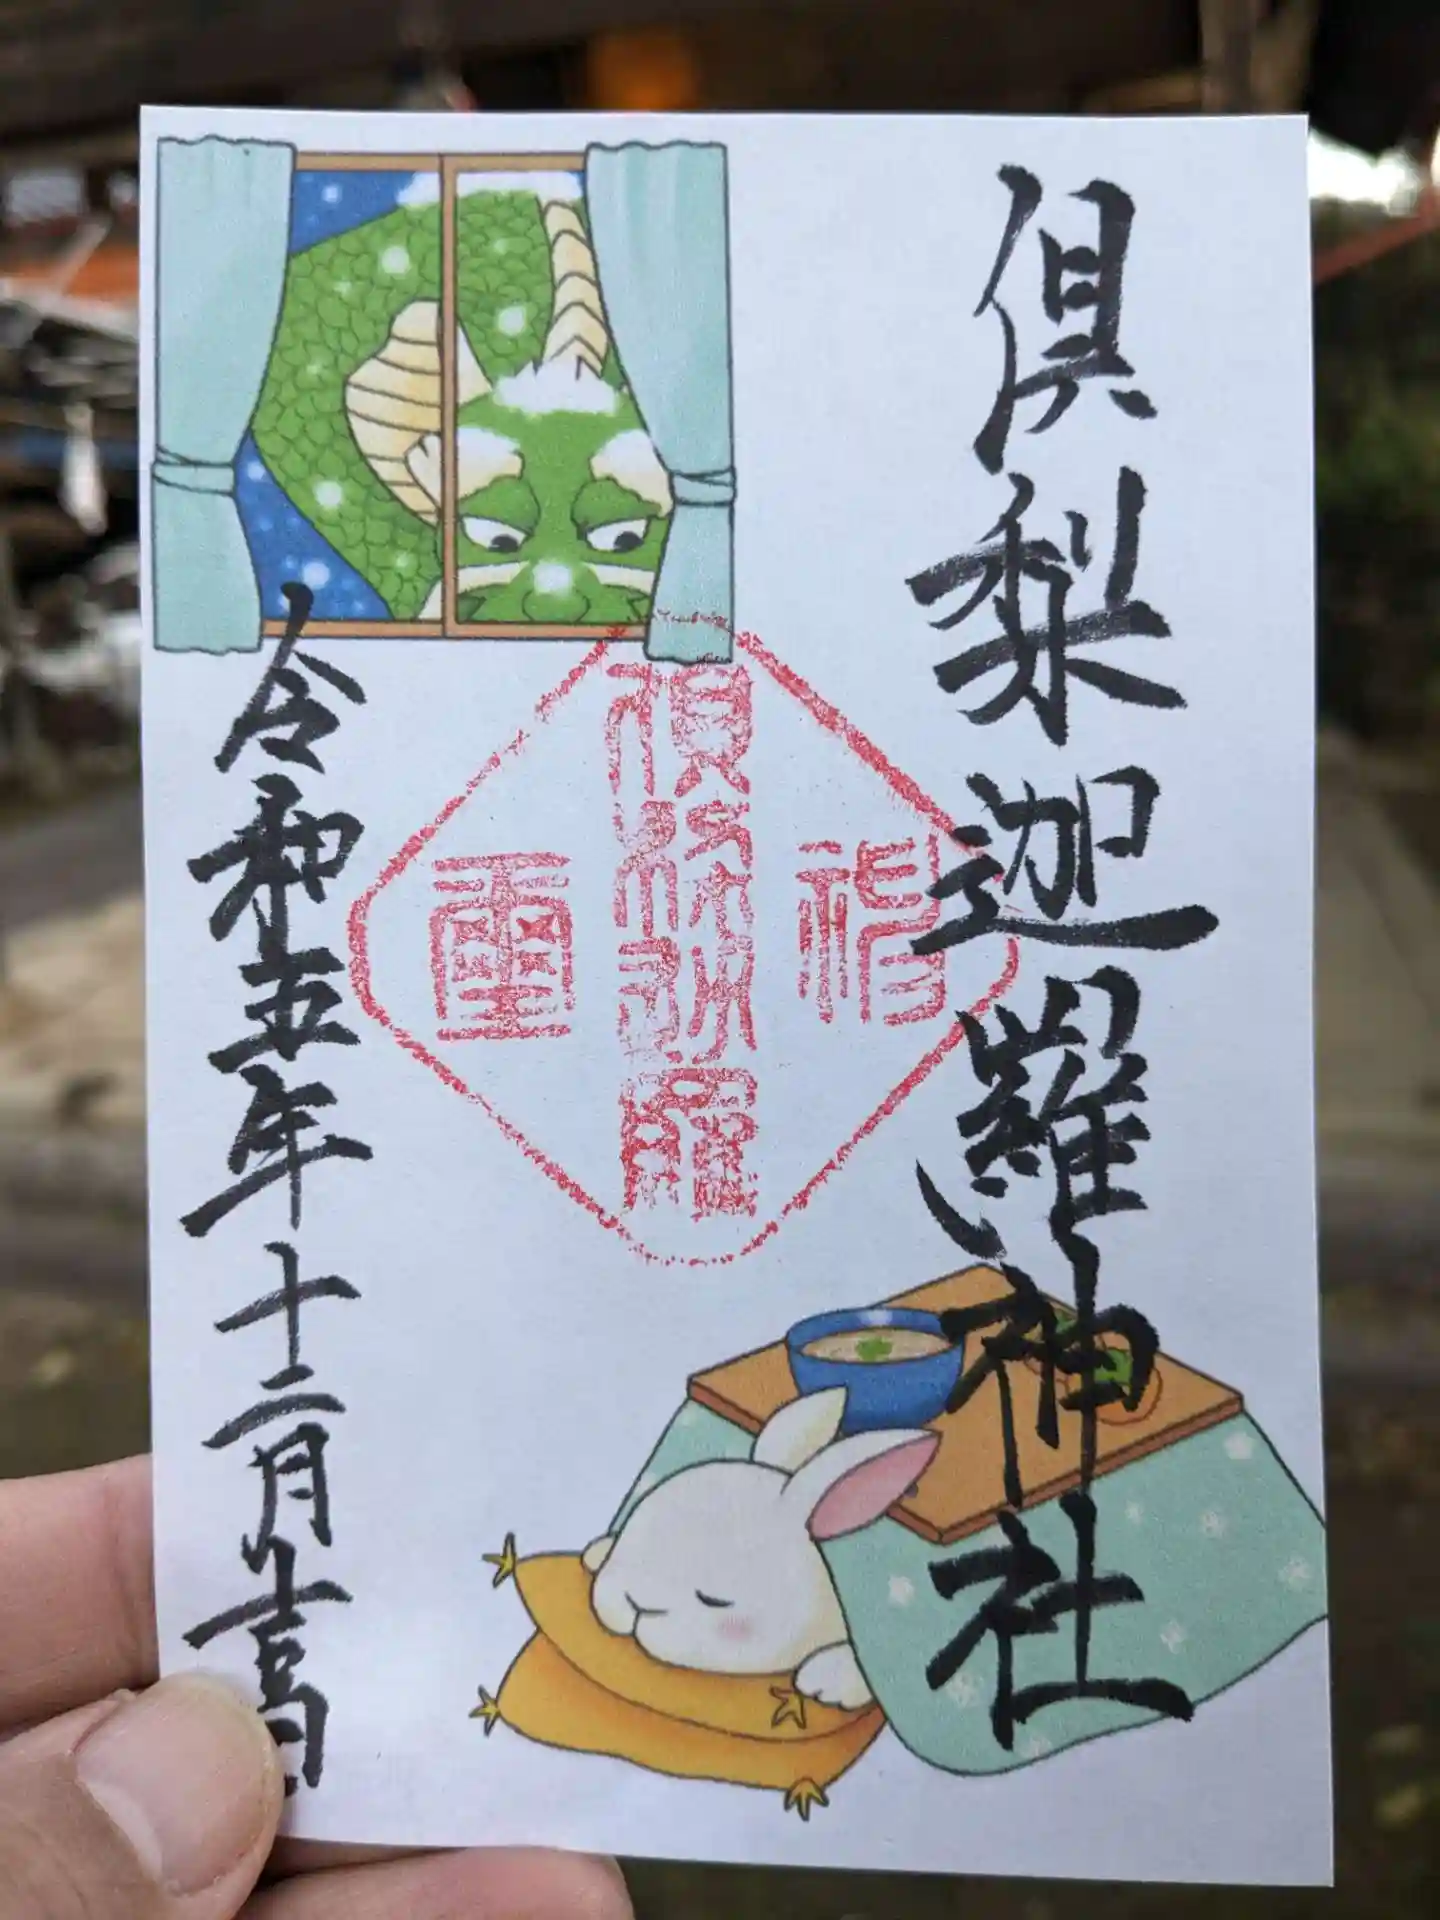 倶梨迦羅神社
神
倶梨迦羅
璽
令和五年十二月吉日